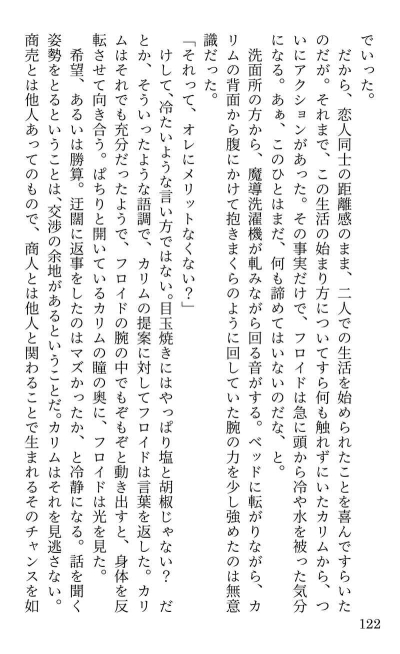 でいった。
　だから、恋人同士の距離感のまま、二人での生活を始められたことを喜んですらいた
のだが。それまで、この生活の始まり方についてすら何も触れずにいたカリムから、つ
いにアクションがあった。その事実だけで、フロイドは急に頭から冷や水を被った気分
になる。あぁ、このひとはまだ、何も諦めてはいないのだな、と。
　洗面所の方から、魔導洗濯機が軋みながら回る音がする。ベッドに転がりながら、カ
リムの背面から腹にかけて抱きまくらのように回していた腕の力を少し強めたのは無意
識だった。
「それって、オレにメリットなくない？」
　けして、冷たいような言い方ではない。目玉焼きにはやっぱり塩と胡椒じゃない？　だ
とか、そういったような語調で、カリムの提案に対してフロイドは言葉を返した。カリ
ムはそれでも充分だったようで、フロイドの腕の中でもぞもぞと動き出すと、身体を反
転させて向き合う。ぱちりと開いているカリムの瞳の奥に、フロイドは光を見た。
　希望、あるいは勝算。迂闊に返事をしたのはマズかったか、と冷静になる。話を聞く
姿勢をとるということは、交渉の余地があるということだ。カリムはそれを見逃さない。
商売とは他人あってのもので、商人とは他人と関わることで生まれるそのチャンスを如
122